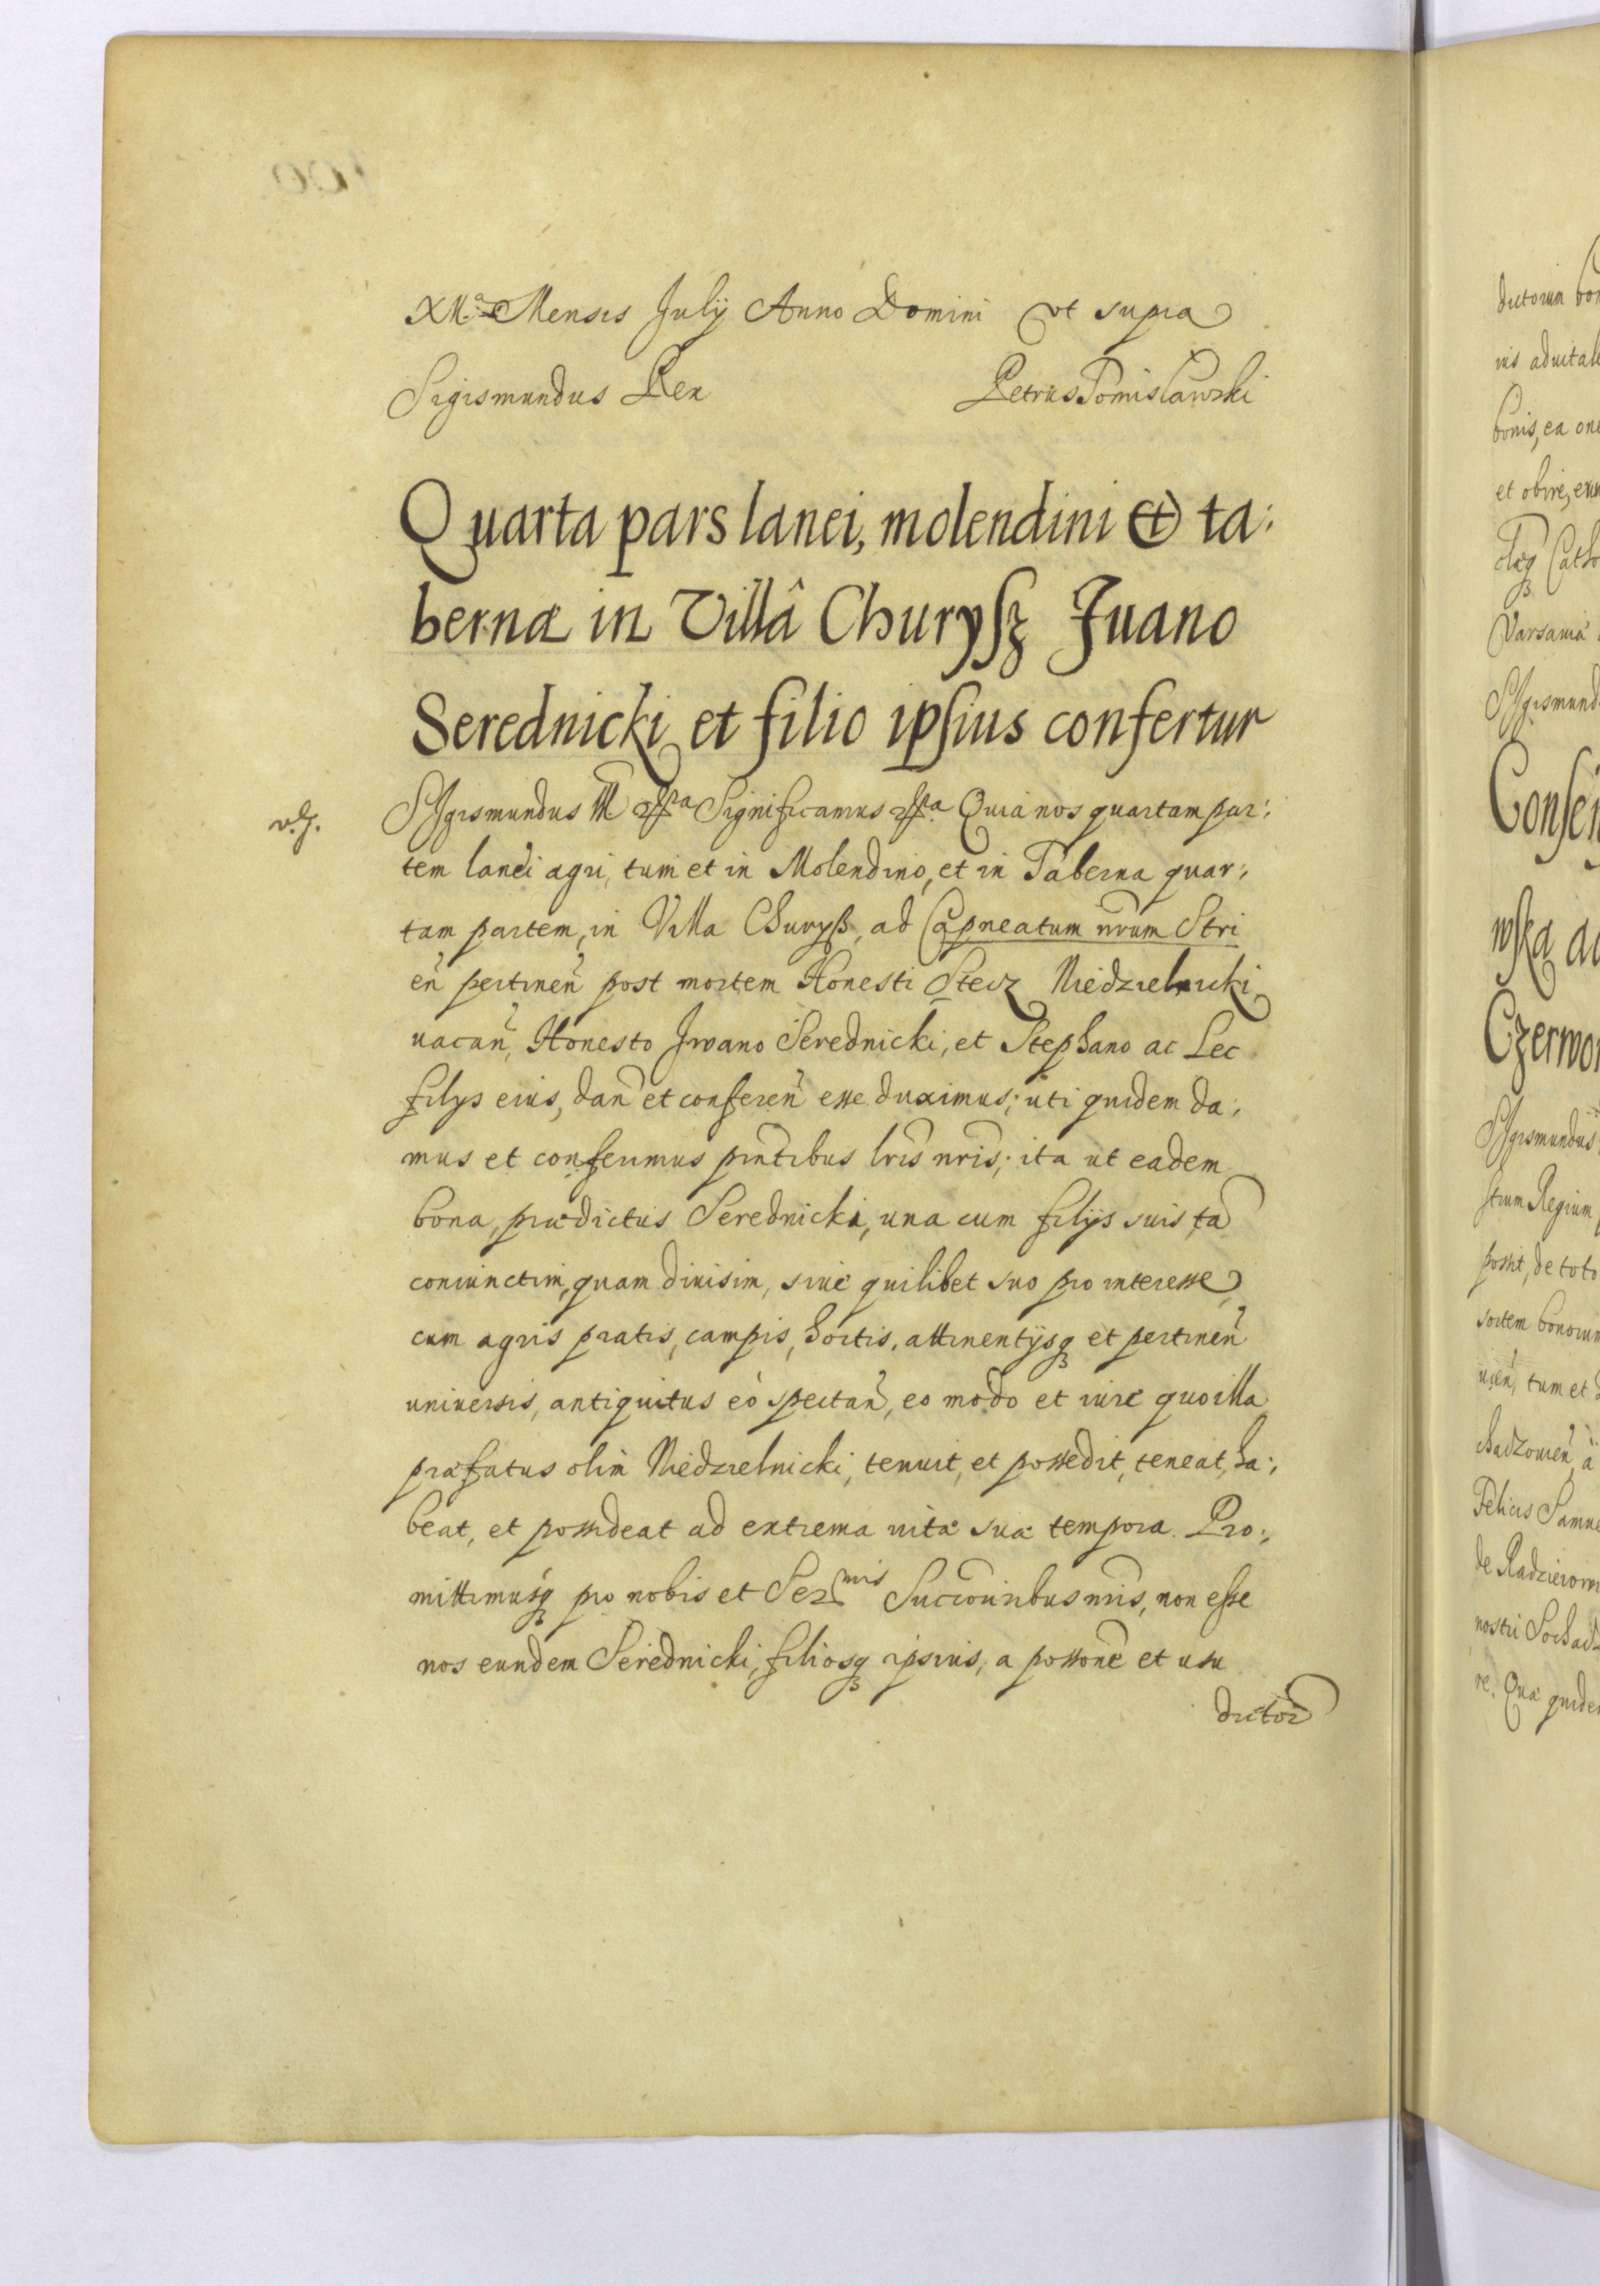 Mensis Julÿ Anno Domini vt supra
Sigismundus Rex Petrus Tomislawski
Quarta pars lanei, molendini et ta:
bernæ in Villâ Churyſz Juano
Serednicki et filio ipſius confertur
SIgismundus III Significamus Quia nos quartam par:
tem lanei agri, tum et in Molendino, et in Taberna quar:
tam partem, in Villa Churyß, ad Capneatum nrum Stri
en̄ pertinen̄ post mortem Honesti Stecz Niedzielnicki
vacan̄, Honesto Jwano Serednicki, et Stephano ac Lec
filys eius, dan̄ et conferen̄ esse duximus; uti quidem da:
mus et conferimus pn̄tibus lris nris; ita ut eadem
bona, prædictus Serednicki, una cum filÿs suis, tā
coniunctim, quam diuisim, siue quilibet suo pro interesse,
cum agris pratis, campis, hortis, attinentÿsq et pertinen̄
uniuersis, antiquitus eò spectan̄, eo modo et iure quo illa
præfatus olim Niedzielnicki, tenuit, et possedit, teneat, ha:
beat, et possideat ad extrema uitæ suæ tempora. Pro:
mittimusq pro nobis et Ser mis Succoribus nris, non eſse
nos eundem Serednicki, filiosq ipsius, a possone et usu
dictor̄
ductorum
uis aduital
bonis, ea one
et obire,
Cath
Varsauiæ
SIgismund
Conſen
wſka ad
Czerwon
SIgismundus
strum Regium
possit, de toto
sortem bonorum
tum et
chadzouien̄, à
Felicis Samue
de Radzieiow
nostri Sochad
re. Quæ quide